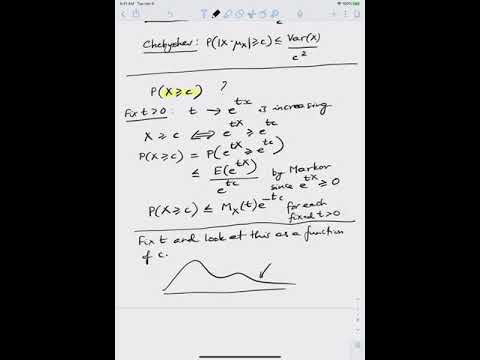 Chebyshev: P(|X-μₓ|≥c) ≤ Var(X)/c²
P(X≥c) ?
Fix t>0: t → e^{tx} is increasing
X≥c ⟺ e^{tX} ≥ e^{tc}
P(X≥c) = P(e^{tX} ≥ e^{tc})
≤ E(e^{tX})/e^{tc} by Markov
since e^{tX} ≥ 0
P(X≥c) ≤ Mₓ(t)e^{-tc} for each
fixed t>0
Fix t and look at this as a function
of c.